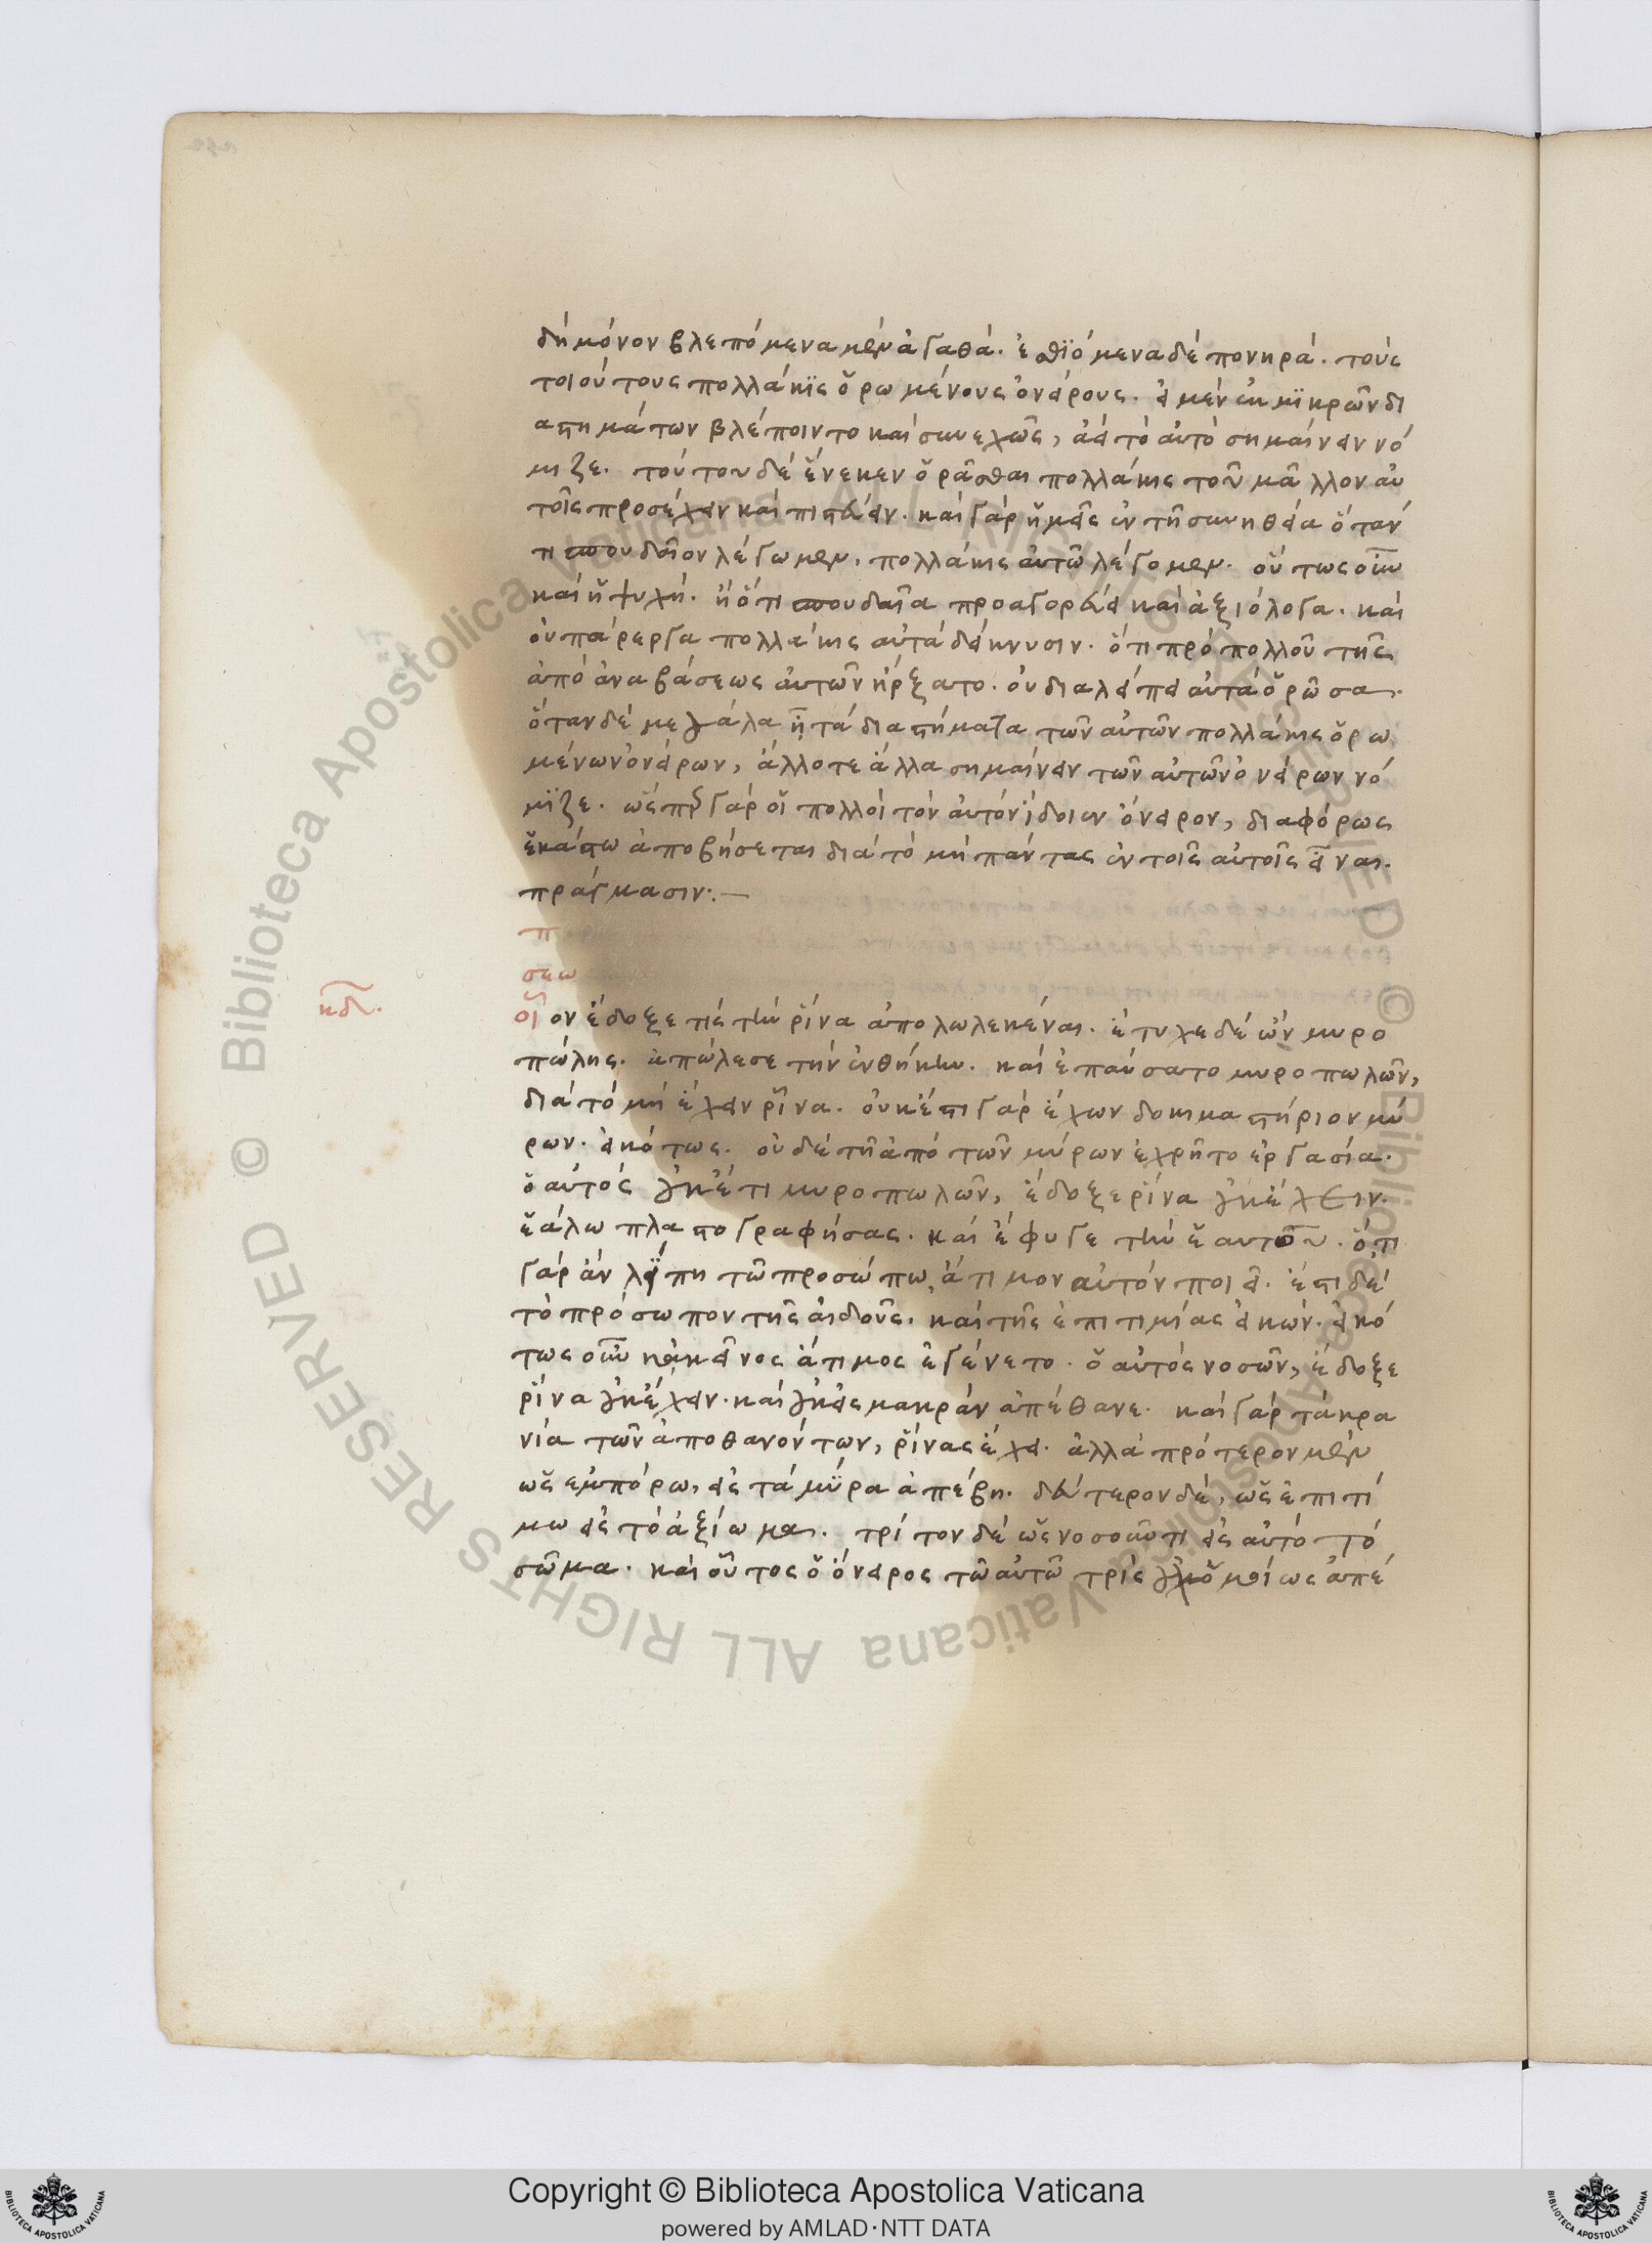 δὴ μόνον βλεπόμενα μὲν ἀγαθά. ἐσθϊόμενα δὲ πονηρά. τοὺς
τοιούτους πολλάκϊς ὁρωμένους ὀνείρους. εἰ μὲν ἐκ μϊκρῶν δι
αστημάτων βλέποιντο καὶ συνεχῶς, ἀεὶ τὸ αὐτὸ σημαίνειν νό
μιζε. τούτου δὲ ἕνεκεν ὁρᾶσθαι πολλάκις τοῦ μᾶλλον αὐ
τοῖς προσέχειν καὶ πιστεύειν. καὶ γὰρ ἡμεῖς ἐν τῇ συνηθεία ὅταν
τι σπουδαῖον λέγωμεν. πολλάκις αὐτῶ λέγομεν. οὕτως οὖν
καὶ ἡ ψυχή. ἢ ὅτι σπουδαῖα προαγορεύει καὶ ἀξιόλογα. καὶ
οὐ πάρεργα πολλάκις αὐτὰ δείκνυσιν. ὅτι πρὸ πολλοῦ τῆς
ἀπὸ ἀναβάσεως αὐτῶν ἤρξατο. οὐ διαλείπει αὐτὰ ὁρῶσα.
ὅταν δὲ μεγάλα ἦ τὰ διαστήματα τῶν αὐτῶν πολλάκις ὁρω
μένων ὀνείρων, ἄλλοτε ἄλλα σημαίνειν τῶν αὐτῶν ὀνείρων νό
μϊζε. ὥσπερ γὰρ οἱ πολλοὶ τὸν αὐτὸν ἴδοιεν ὄνειρον, διαφόρως
ἑκάστω ἀποβήσεται διὰ τὸ μὴ πάντας ἐν τοῖς αὐτοῖς εἶναι.
πράγμασιν:—
π
σεω
κδ.
οἷον ἔδοξε τὶς τὴν ῥίνα ἀπολωλεκέναι. ἔτυχε δὲ ὢν μυρο
πώλης. ἀπώλεσε τὴν ἐνθήκην. καὶ ἐπαύσατο μυροπωλῶν,
διὰ τὸ μὴ ἔχειν ῥῖνα. οὐκέτι γὰρ ἔχων δοκιμαστήριον μύ
ρων. εἰκότως. οὐδὲ τῆ ἀπὸ τῶν μύρων ἐχρῆτο ἐργασία.
ὁ αὐτὸς οὐκέτι μυροπωλῶν, ἔδοξε ῥίνα οὐκ ἔχειν.
ἑάλω πλαστογραφήσας. καὶ ἔφυγε τὴν ἑαυτοῦ. ὅτι
γὰρ ἂν λείπη τῶ προσώπω, ἄτιμον αὐτὸν ποιεῖ. ἔστι δὲ
τὸ πρόσωπον τῆς αἰδοῦς. καὶ τῆς ἐπιτιμίας εἰκών. εἰκό
τως οὖν κἀκεῖνος ἄτιμος ἐγένετο. ὁ αὐτὸς νοσῶν, ἔδοξε
ῥίνα οὐκ ἔχειν. καὶ οὐκ εἰς μακρὰν ἀπέθανε. καὶ γὰρ τὰ κρα
νία τῶν ἀποθανόντων, ῥίνας ἔχει. ἀλλὰ πρότερον μὲν
ὡς ἐμπόρω, εἰς τὰ μύρα ἀπέβη. δεύτερον δὲ, ὡς ἐπιτί
μω εἰς τὸ ἀξίωμα. τρίτον δὲ ὡς νοσοῦντι εἰς αὐτὸ τὸ
σῶμα. καὶ οὗτος ὁ ὄνειρος τῶ αὐτῶ τρὶς οὐχ ὁμοίως ἀπέ
Copyright © Biblioteca Apostolica Vaticana
powered by AMLAD·NTT DATA